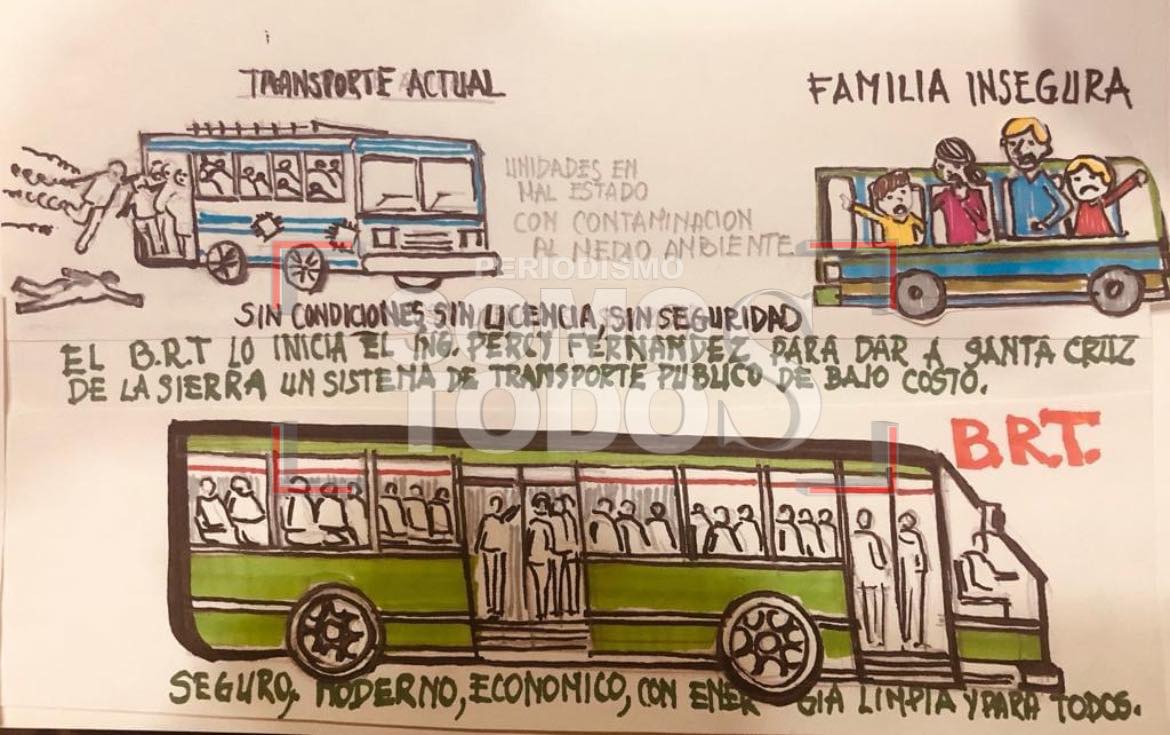 TRANSPORTE ACTUAL
FAMILIA INSEGURA
UNIDADES EN
MAL ESTADO
CON CONTAMINACION
AL MEDIO AMBIENTE
PERIODISMO
SOMOS
TODOS
SIN CONDICIONES, SIN LICENCIA, SIN SEGURIDAD
EL B.R.T LO INICIA EL ING. PERCY FERNANDEZ PARA DAR A SANTA CRUZ
DE LA SIERRA UN SISTEMA DE TRANSPORTE PUBLICO DE BAJO COSTO.
B.R.T.
SEGURO, MODERNO, ECONOMICO, CON ENER GIA LIMPIA Y PARA TODOS.